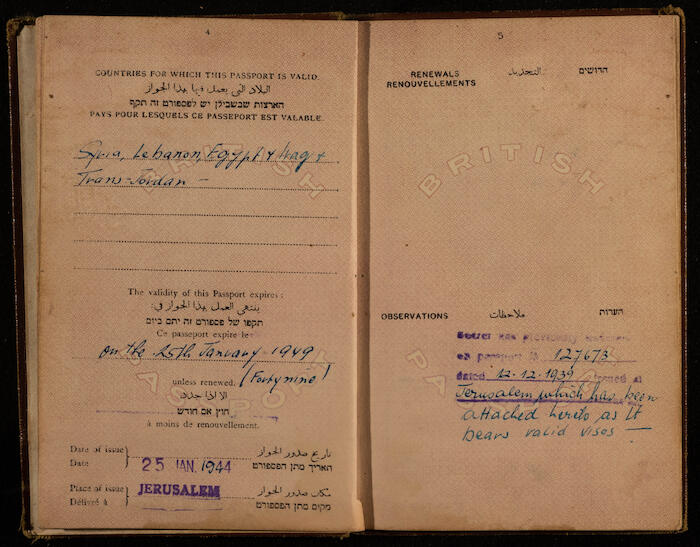 4
COUNTRIES FOR WHICH THIS PASSPORT IS VALID.
البلاد التي يعمل فيها بهذا الجواز
הארצות שבשבילן יש לפספורט זה תקף
PAYS POUR LESQUELS CE PASSEPORT EST VALABLE.
Syria, Lebanon, Egypt & Iraq &
Trans-Jordan —
BRITISH
The validity of this Passport expires:
ينتهي العمل بهذا الجواز في:
תקפו של פספורט זה יתם ביום
Ce passeport expire le
on the 25th January 1949
(Forty nine)
unless renewed.
الا اذا جدد
חוץ אם חודש
à moins de renouvellement.
PASSPORT
Date of issue
Date
25 JAN. 1944
تاريخ صدور الجواز
תאריך מתן הפספורט
Place of issue
Délivré à
JERUSALEM
مكان صدور الجواز
מקום מתן הפספורט
5
RENEWALS التجديد חדושים
RENOUVELLEMENTS
BRITISH
OBSERVATIONS ملاحظات הערות
PASSPORT
has previously
on passport № 127673
dated 12-12-1939 issued at
Jerusalem which has been
attached hereto as it
bears valid visas —